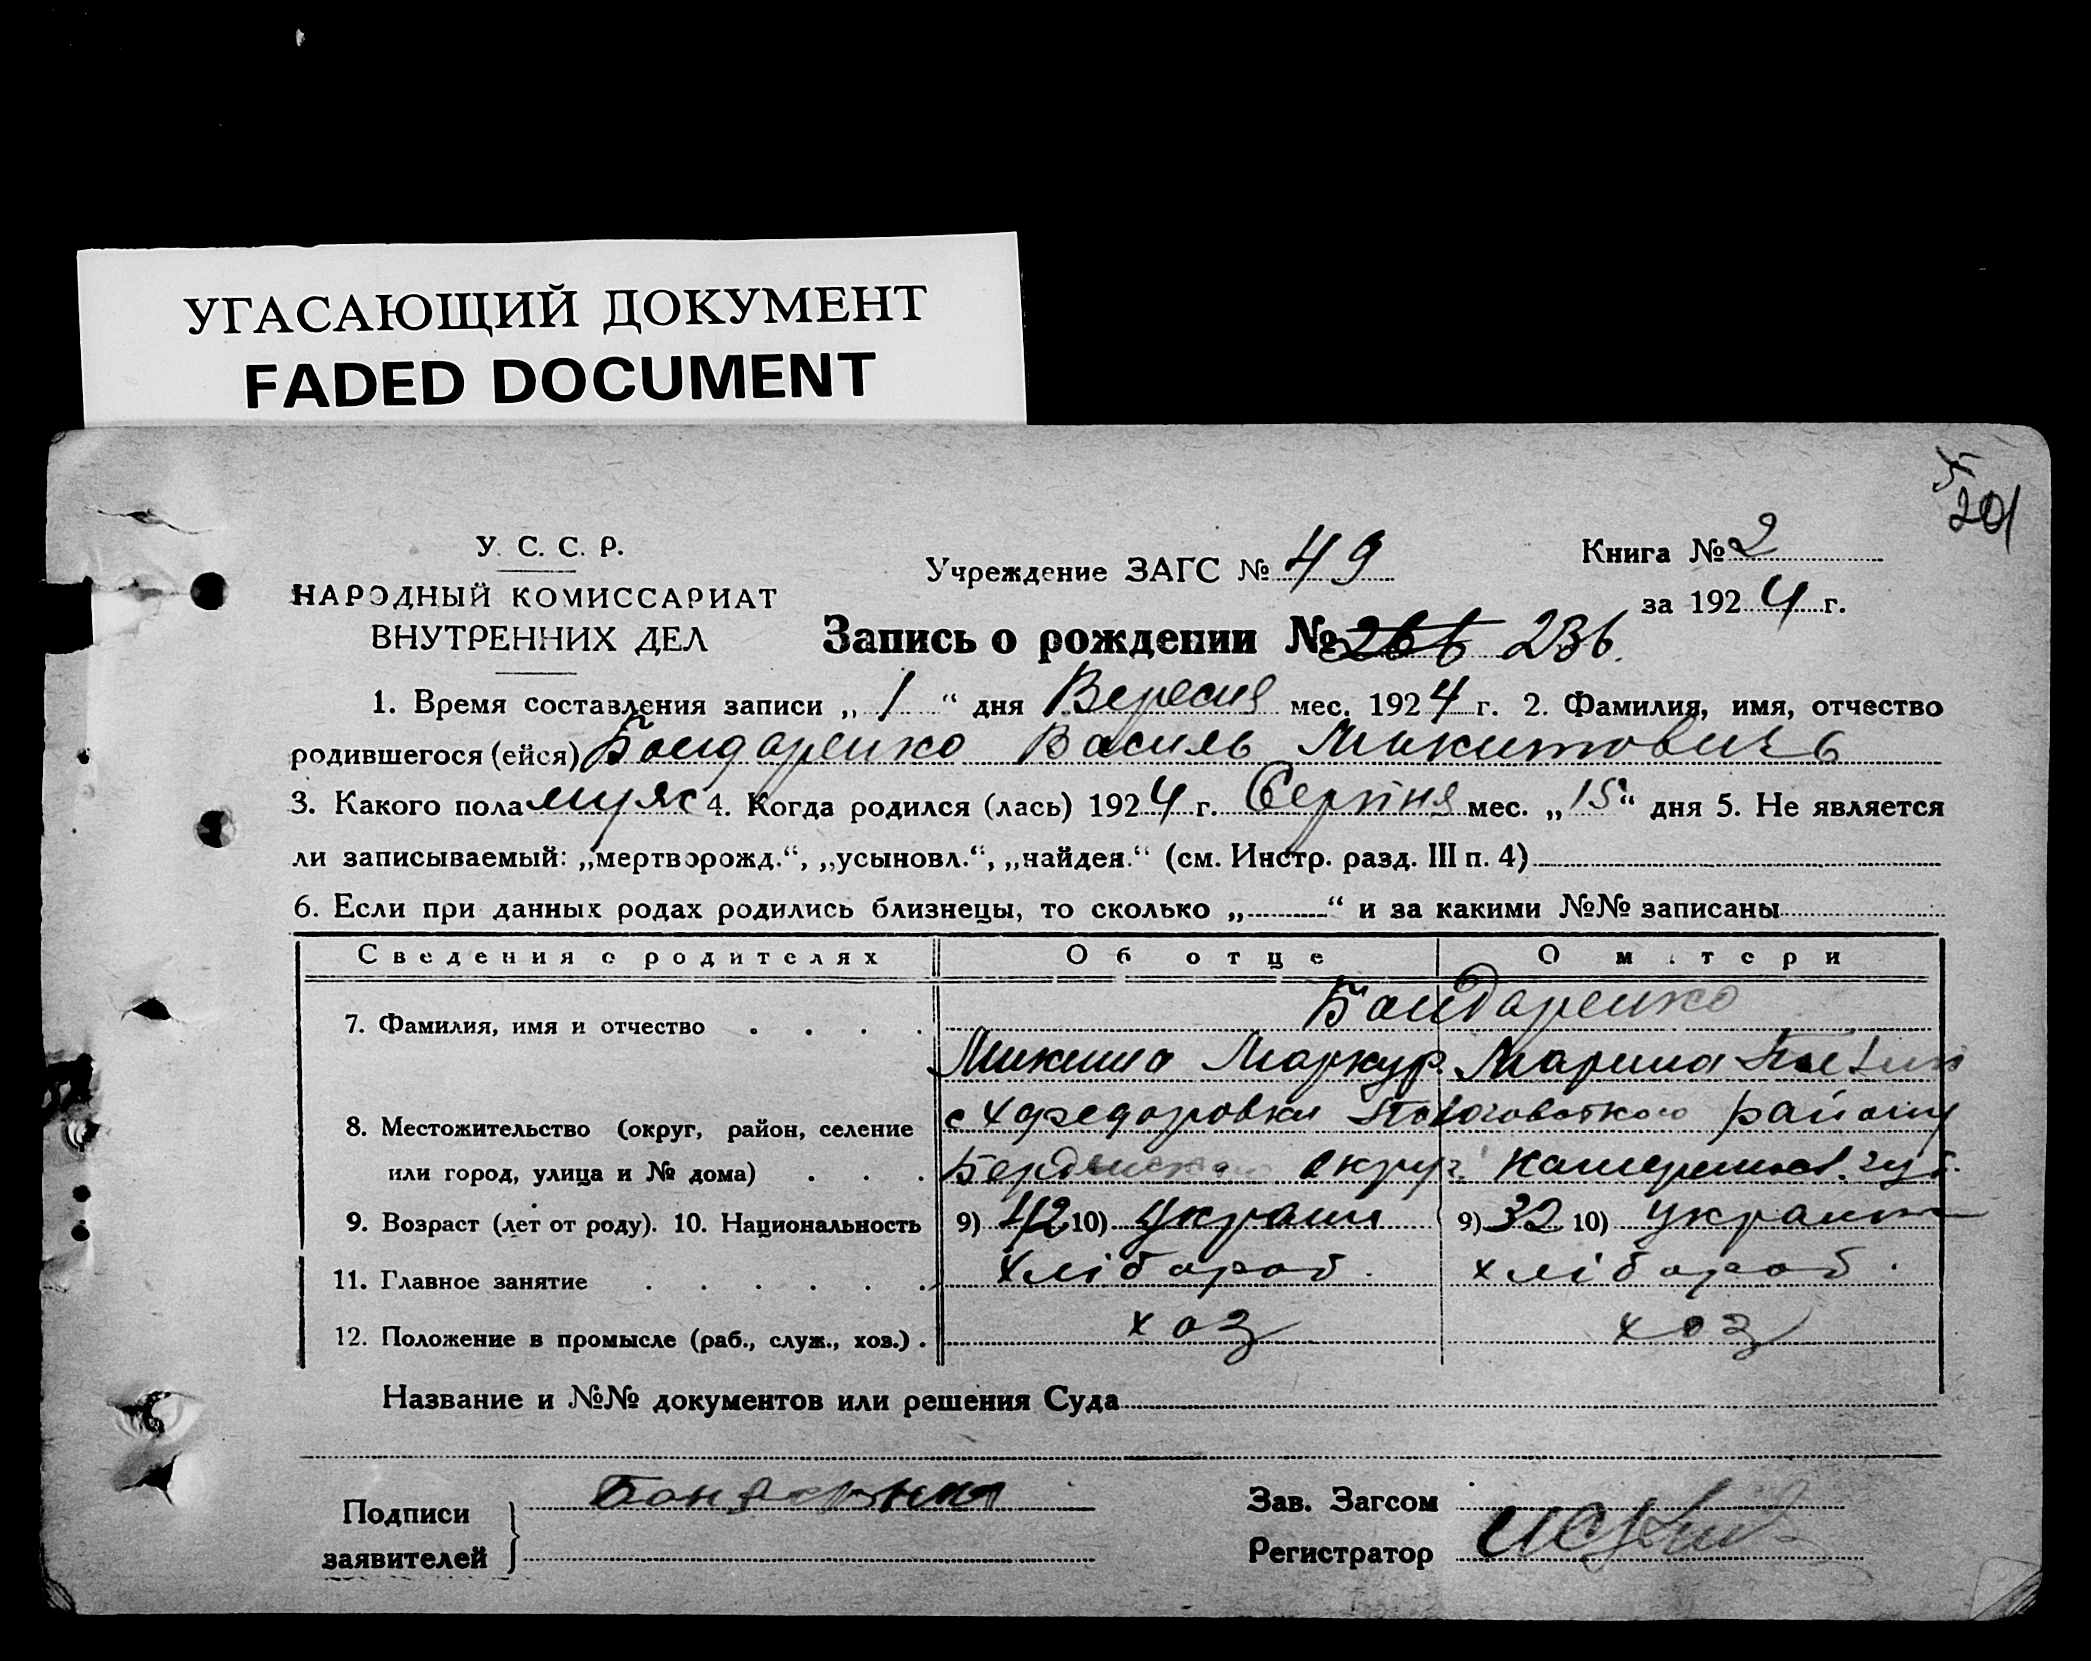 УГАСАЮЩИЙ ДОКУМЕНТ
FADED DOCUMENT
5
201
У. С. С. Р.
НАРОДНЫЙ КОМИССАРИАТ
ВНУТРЕННИХ ДЕЛ
Учреждение ЗАГС № 49
Книга № 2
за 1924 г.
Запись о рождении № 236.
1. Время составления записи „ 1 “ дня Вересня мес. 1924 г. 2. Фамилия, имя, отчество
родившегося (ейся) Бондаренко Василь Микитовичь
3. Какого пола муж 4. Когда родился (лась) 1924 г. Серпня мес. „15“ дня 5. Не является
ли записываемый: „мертворожд.“, „усыновл.“, „найден.“ (см. Инстр. разд. III п. 4)
6. Если при данных родах родились близнецы, то сколько „ “ и за какими №№ записаны
Сведения о родителях Об отце О матери
7. Фамилия, имя и отчество Бондаренко
Микита Маркур. Марина
8. Местожительство (округ, район, селение с Федоровки района
или город, улица и № дома) Бердянского округ. Катеринослав. губ.
9. Возраст (лет от роду). 10. Национальность 9) 42 10) Украин 9) 32 10) Украин
11. Главное занятие хлібороб. хлібороб.
12. Положение в промысле (раб., служ., хоз.). хоз хоз
Название и №№ документов или решения Суда
Подписи
заявителей
Зав. Загсом
Регистратор